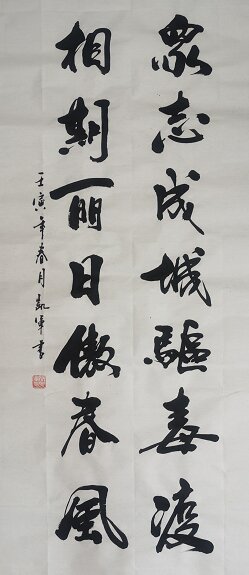 眾志成城驅毒疫
相期麗日傲春風
壬寅年春月凱軍書